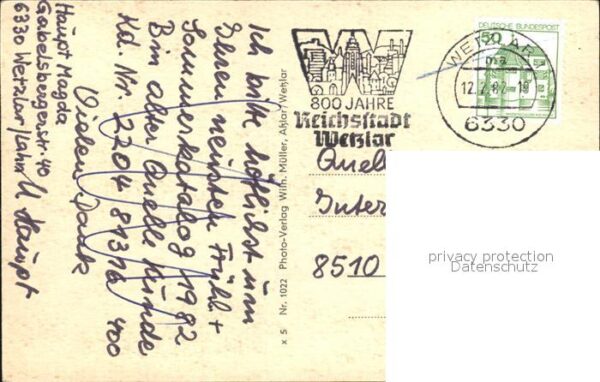 Haupt Magda
Gabelsbergerstr. 40
6330 Wetzlar/Lahn
Ich bitte höflichst um
Ihren neuesten Früh +
Sommerkatalog 1982
Bin alter Quelle Kunde
Kd. Nr. 2204
Vielen Dank
M Haupt
x 5 Nr. 1022 Photo-Verlag Wilh. Müller, Aßlar/Wetzlar
800 JAHRE
Reichsstadt
Wetzlar
DEUTSCHE BUNDESPOST
50
WETZLAR
12.2.82-18
6330
Quell
Inter
8510
privacy protection
Datenschutz